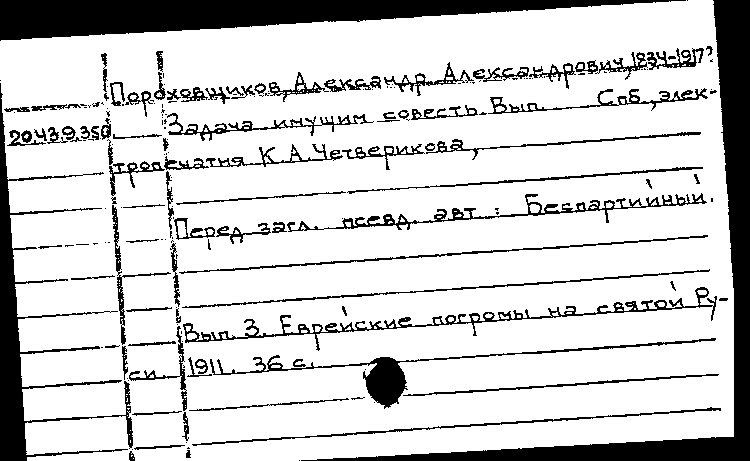 Пороховщиков, Александр Александрович, 1834-1917?
20.439.350 Задача имущим совесть. Вып. Спб, элек-
тропечатня К.А.Четверикова,
Перед загл. псевд. авт : Беспартийный.
Вып. 3. Еврейские погромы на святой Ру-
си. 1911. 36 с.